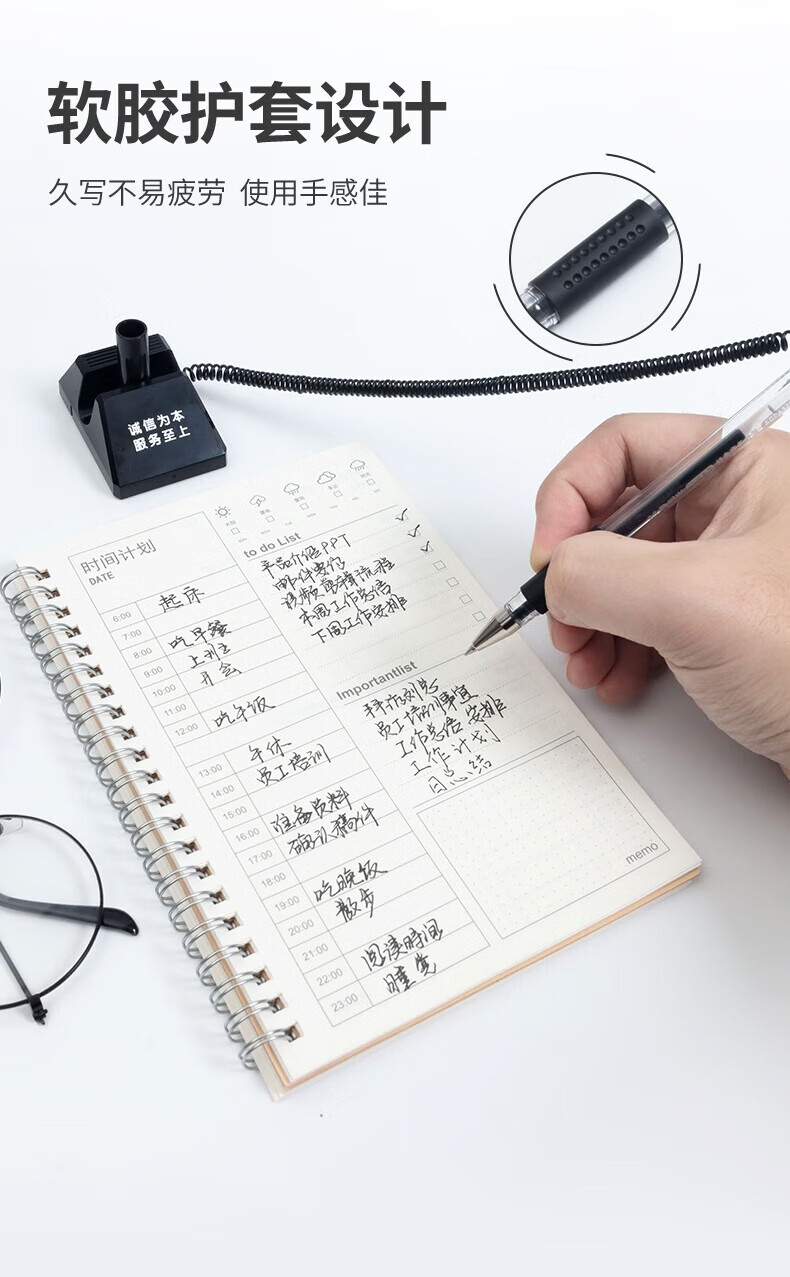 软胶护套设计
久写不易疲劳 使用手感佳
诚信为本
服务至上
时间计划
DATE
6:00 起床
7:00
8:00 吃早餐
9:00 上班
10:00 开会
11:00
12:00 吃午饭
13:00 午休
14:00 员工培训
15:00
16:00 准备资料
17:00 确认稿件
18:00
19:00 吃晚饭
20:00 散步
21:00
22:00 阅读时间
23:00 睡觉
to do List
产品介绍PPT
邮件
视频剪辑流程
本周工作总结
下周工作安排
Importantlist
员工培训事宜
工作总结 安排
工作计划
日总结
memo